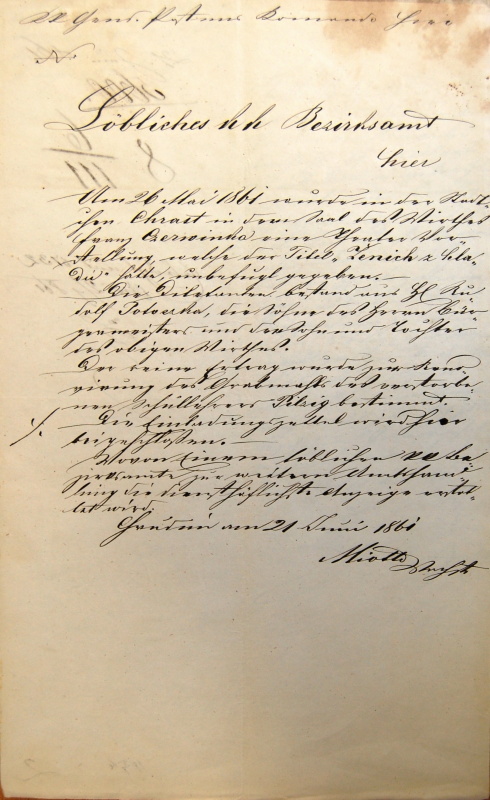 KK Gens. Postens Komando hier
No
Löbliches k k Bezirksamt
hier
Am 26 Mai 1861 wurde in der Städt-
chen Chrast in dem Saal des Wirthes
Franz Czerwinka eine Theater Vor-
stellung, welche den Titel, Ženich z hla-
du" hatte, unbefugt gegeben.–
Die Diletanden bestand aus H. Ru-
dolf Potoczka, die Söhne des Herrn Bür-
germeisters und der Sohn und Tochter
des obigen Wirthes.
Der reine Ertrag wurde zur Reno-
virung des Grabmahls des verstorbe-
nen Schullehrers bestimmt.
./. Die Einladungszettel wird hier
beigeschlossen.–
Wovon Einem löblichen kk Be-
zirksamte zur weitern Amtshand-
lung die diensthöflichste Anzeige erstat-
tet wird.
Chrudim am 21 Juni 1861
Miotto